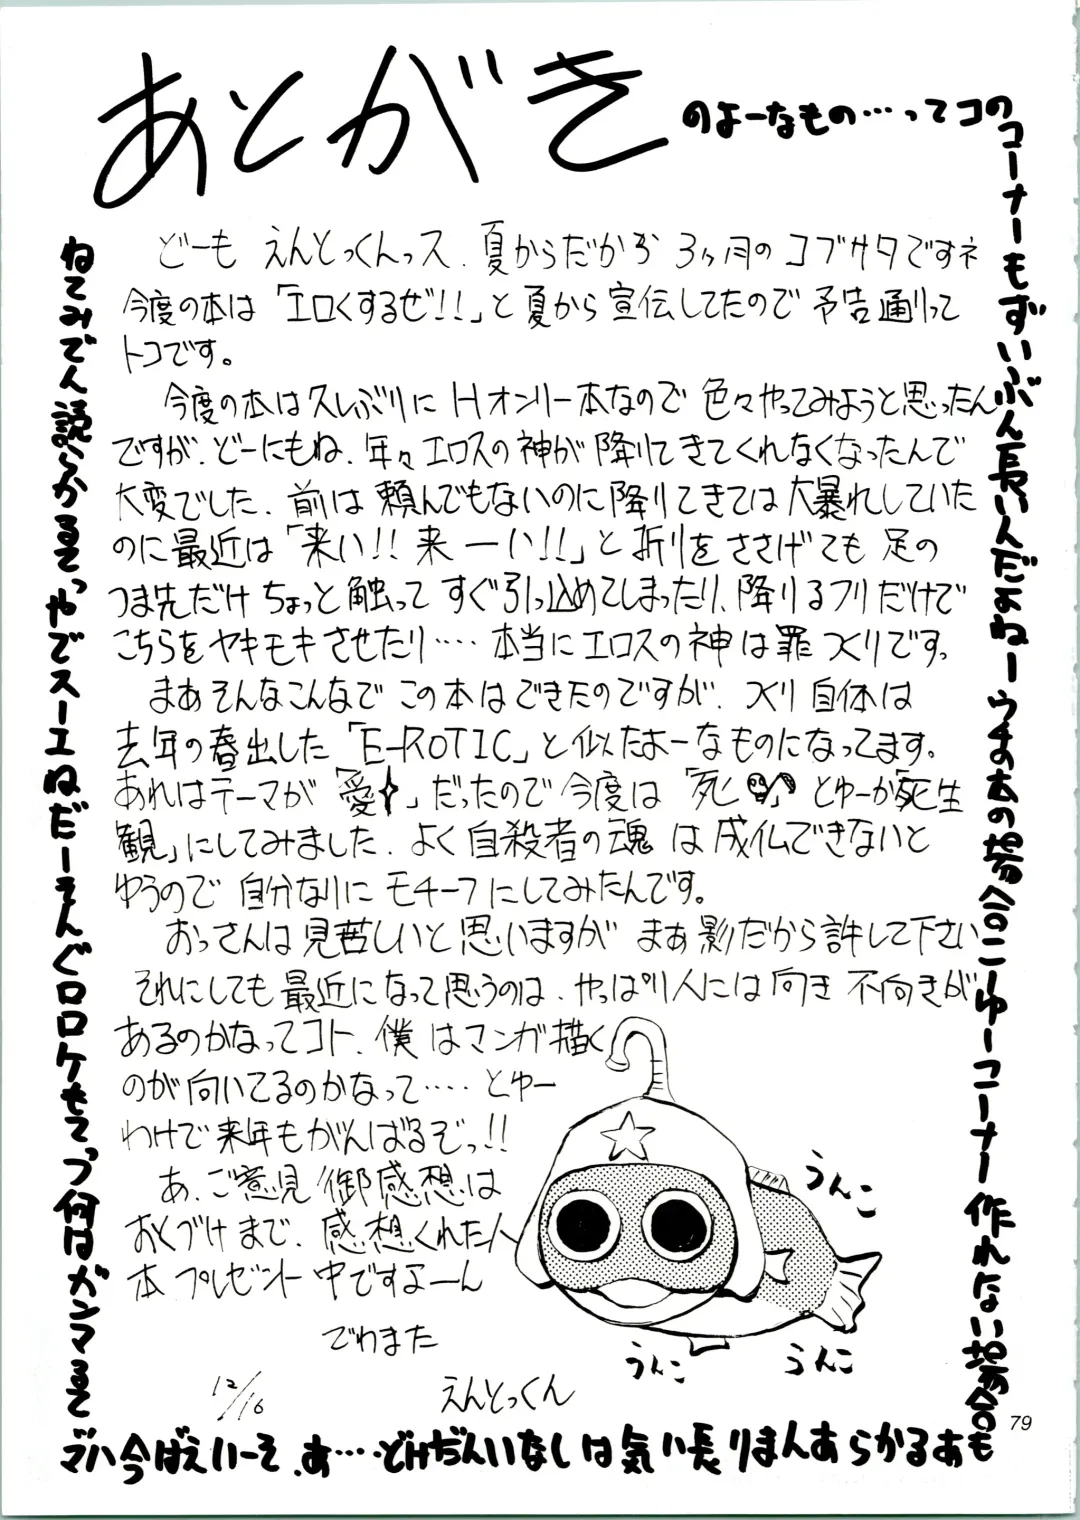 あとがき
のよーなもの…ってコのコーナーもずいぶん長いんだよねーウチの本の場合こーゆーコーナー作れない場合も
あるからあんまり長い気はしないんだけど‥‥あ、そーいえば今
どーも えんとっくんっス. 夏からだから 3ヶ月のゴブサタですネ
今度の本は「エロくするぜ!!」と夏から宣伝してたので 予告通りって
トコです。
今度の本は久しぶりに Hオンリー本なので 色々やってみようと思ったん
ですが、どーにもね、年々エロスの神が降りてきてくれなくなったんで
大変でした. 前は頼んでもないのに降りてきては大暴れしていた
のに最近は「来い!! 来ーい!!」と祈りをささげても 足の
つま先だけちょっと触って すぐ引っ込めてしまったり、降りるフリだけで
こちらをヤキモキさせたり‥‥本当にエロスの神は罪つくりです。
まあそんなこんなで この本はできたのですが、つくり自体は
去年の春出した「E-ROTIC」と似たよーなものになってます。
あれはテーマが「愛」だったので今度は「死」とゆーか「死生
観」にしてみました. よく自殺者の魂は成仏できないと
ゆうので 自分なりに モチーフにしてみたんです。
おっさんは見苦しいと思いますが まぁ影だから許して下さい
それにしても最近になって思うのは、やっぱり人には向き 不向きが
あるのかなってコト、僕はマンガ描く
のが向いてるのかなって‥‥とゆー
わけで来年もがんばるぞっ!!
あ、ご意見/御感想は
おくづけまで、感想くれた人
本 プレゼント中ですよーん
でわまた
12/16
えんとっくん
うんこ
うんこ
うんこ
79